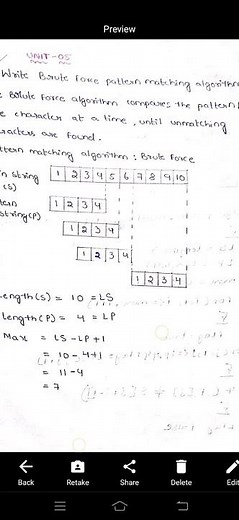 Preview
UNIT-05
Write Brute Force pattern matching algorithm
Brute Force algorithm compares the pattern
character at a time, until unmatching
racters are found.
ttern matching algorithm : Brute Force
n string 1 2 3 4 5 6 7 8 9 10
(S)
tern 1 2 3 4
string(P)
1 2 3 4
1 2 3 4
1 2 3 4
Length(S) = 10 = LS
Length(P) = 4 = LP
Max = LS-LP+1
= 10-4+1
= 11-4
= 7
Back Retake Share Delete Edit